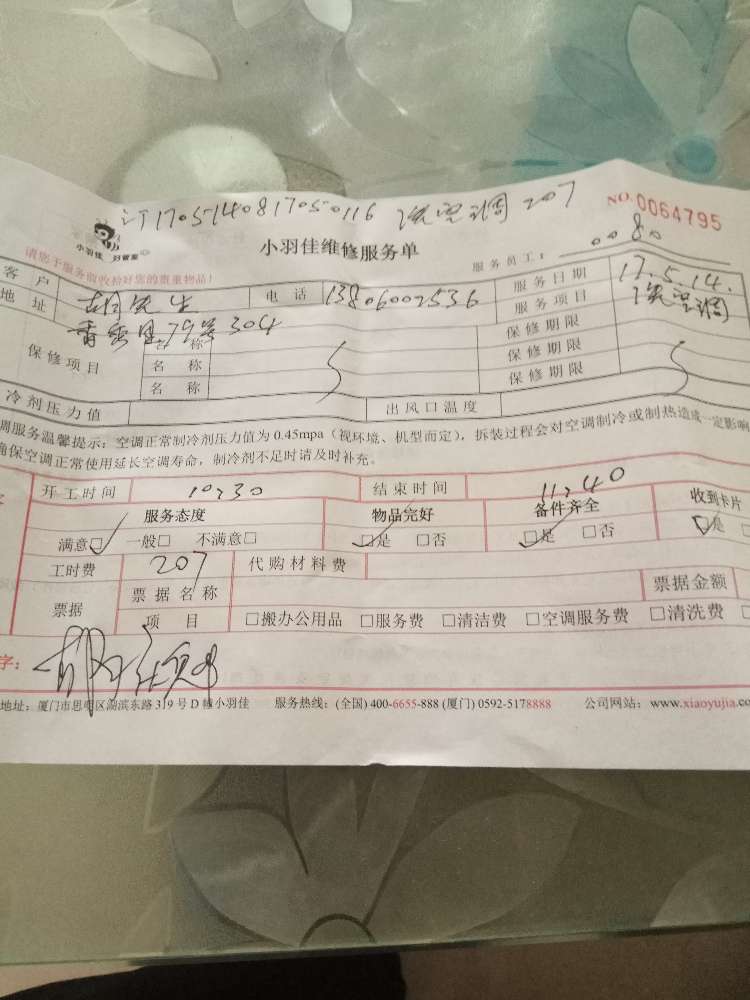 订170514081705-0116 洗空调 207
NO.0064795
小羽佳 好管家
小羽佳维修服务单
服务员工: 0080
请您于服务前收拾好您的贵重物品!
客户 胡先生 电话 13806002536 服务日期 17.5.14.
地址 79号304 服务项目 洗空调
保修项目 名称 保修期限
名称 保修期限
名称 保修期限
冷剂压力值 出风口温度
调服务温馨提示: 空调正常制冷剂压力值为 0.45mpa (视环境、机型而定), 拆装过程会对空调制冷或制热造成一定影响
确保空调正常使用延长空调寿命, 制冷剂不足时请及时补充。
开工时间 10:30 结束时间 11:40
服务态度 物品完好 备件齐全 收到卡片
满意□ 一般□ 不满意□ □是 □否 □是 □否 □是
工时费 207 代购材料费
票据 票据名称 票据金额
项目 □搬办公用品 □服务费 □清洁费 □空调服务费 □清洗费
字:
地址: 厦门市思明区湖滨东路 319 号 D 幢小羽佳 服务热线: (全国) 400-6655-888 (厦门) 0592-5178888 公司网站: www.xiaoyujia.co